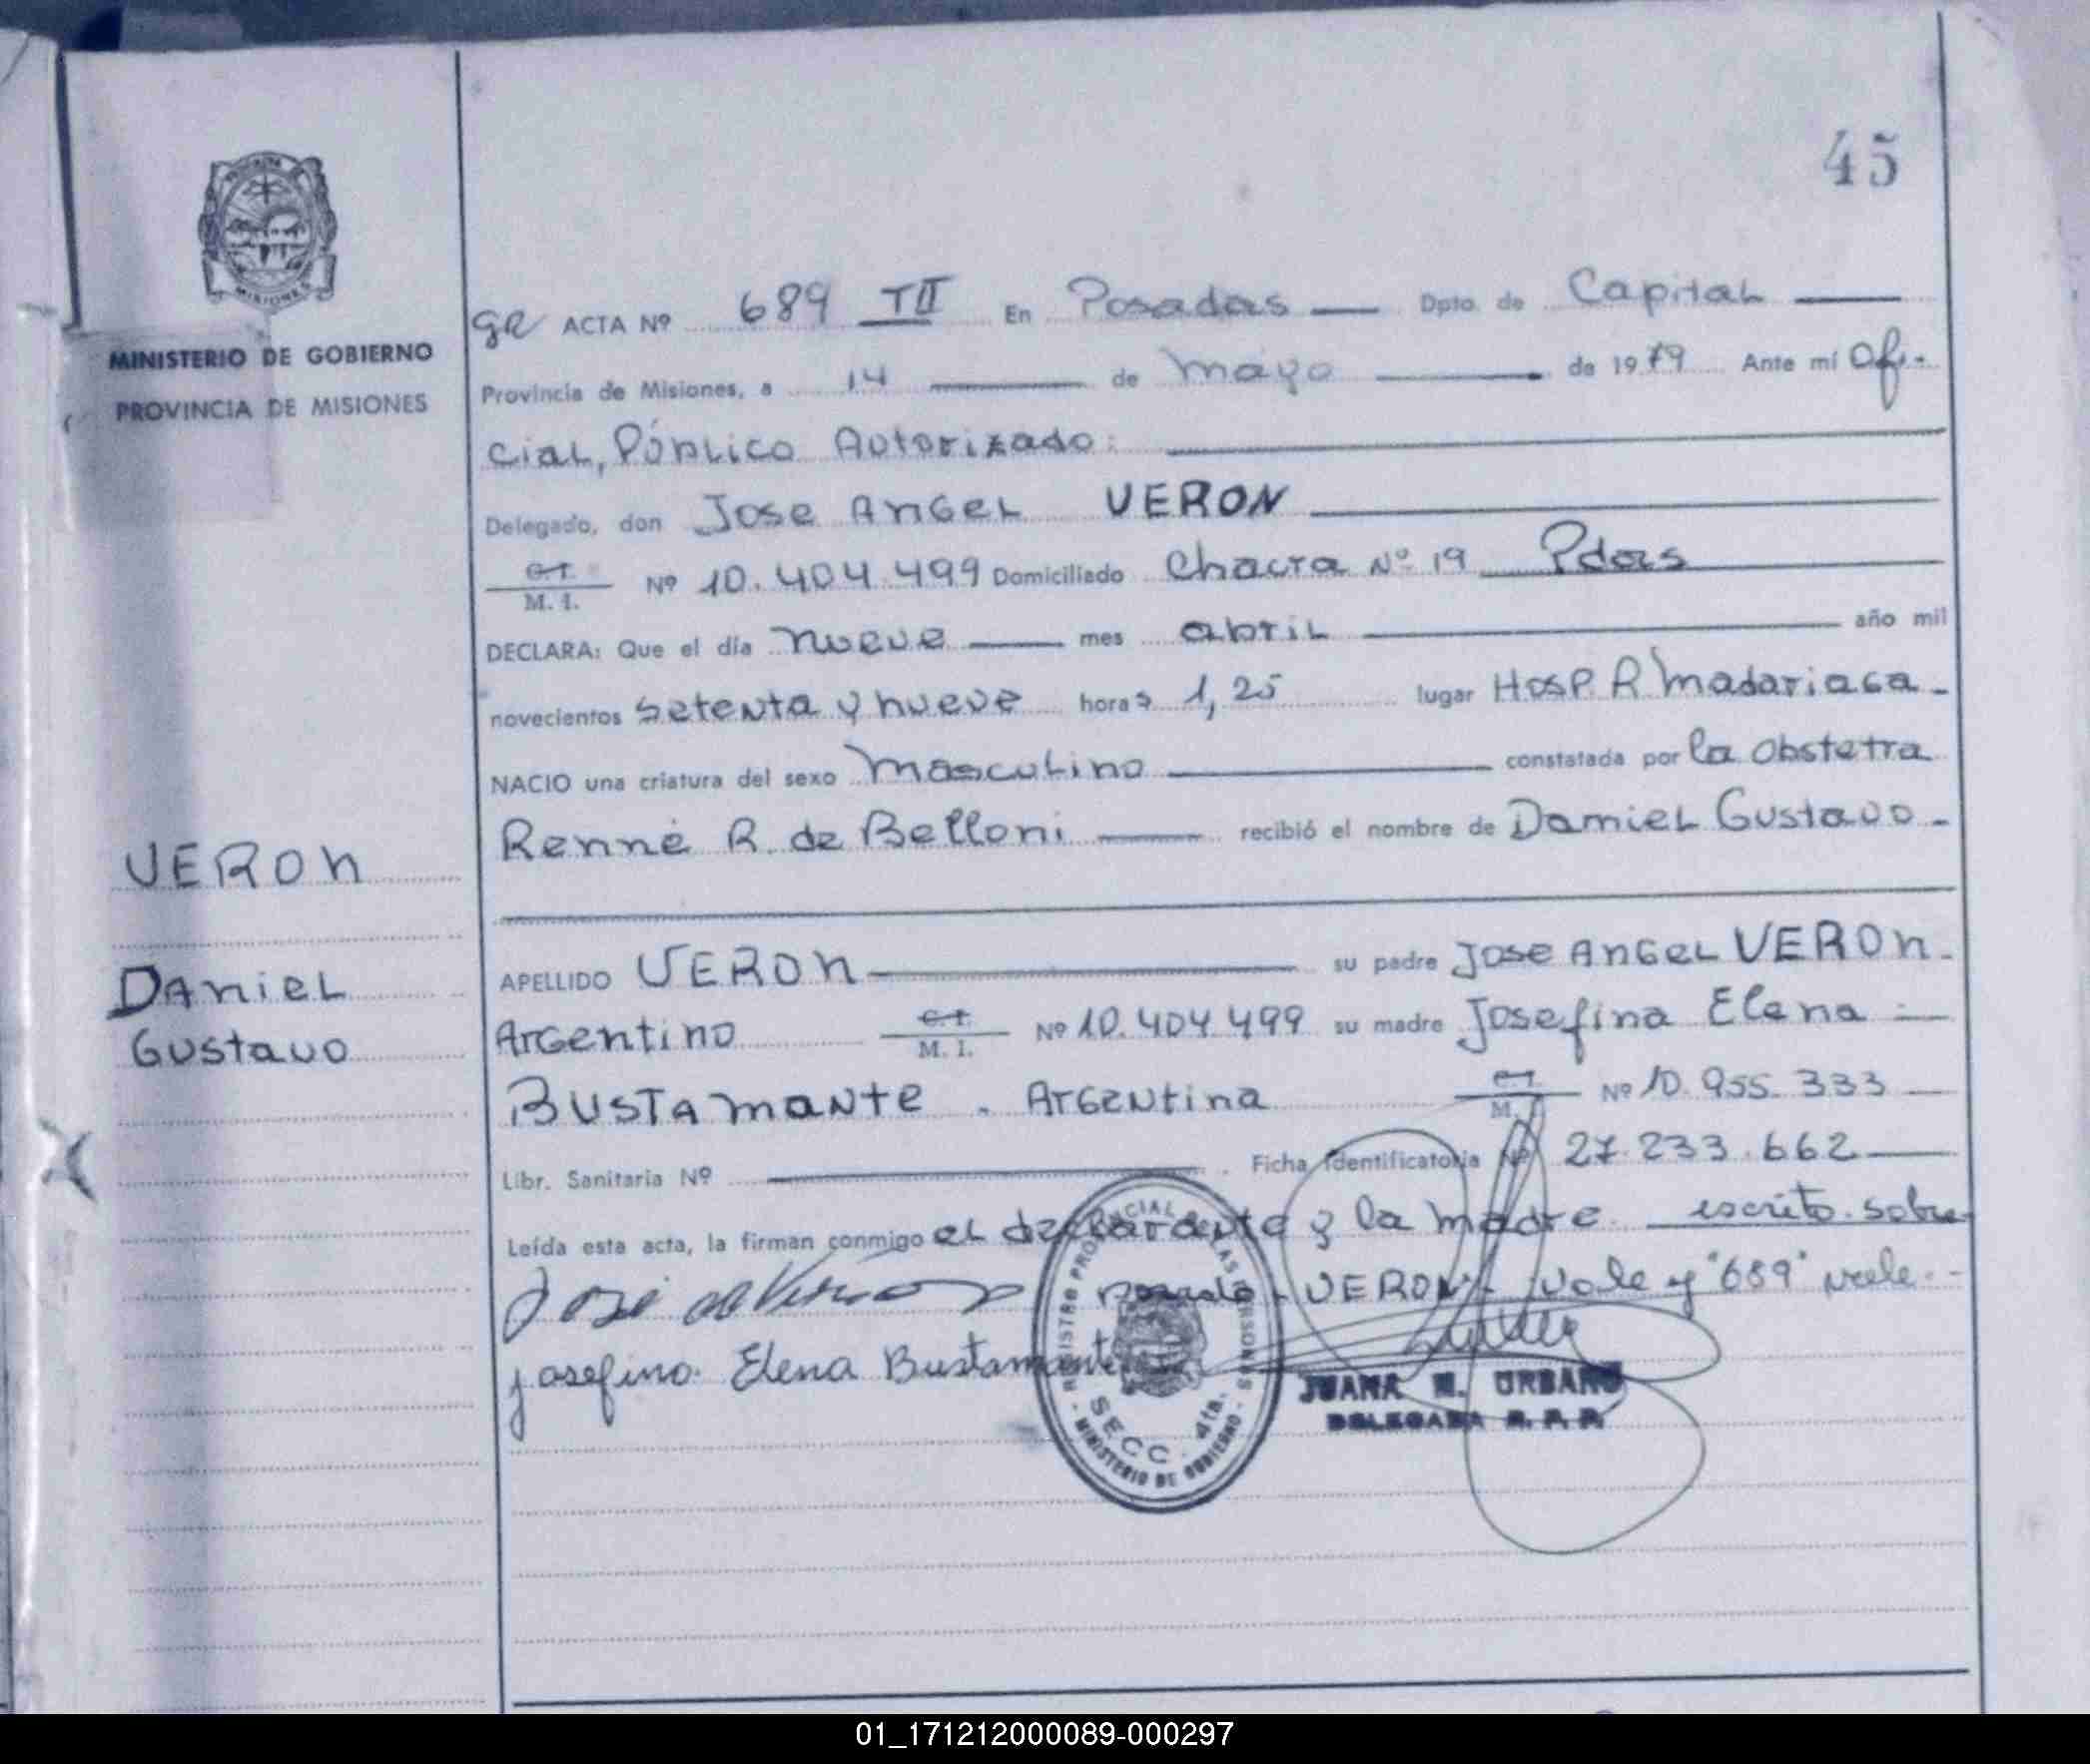 45
MISIONES
MINISTERIO DE GOBIERNO
PROVINCIA DE MISIONES
VERON
DANIEL
GUSTAVO
ACTA Nº 689 TII En Posadas Dpto. de Capital
Provincia de Misiones, a 14 de mayo de 1979 Ante mí Ofi-
cial, Público Autorizado:
Delegado, don Jose Angel VERON
C.I. M. I. Nº 10.404.499 Domiciliado Chacra Nº 19 Pdas
DECLARA: Que el día nueve mes abril año mil
novecientos setenta y nueve horas 1,25 lugar Hosp. R Madariaga -
NACIO una criatura del sexo masculino constatada por la obstetra
Renné R. de Belloni recibió el nombre de Daniel Gustavo -
APELLIDO VERON su padre Jose Angel VERON -
Argentino C.I. M. I. Nº 10.404.499 su madre Josefina Elena
BUSTAMANTE . Argentina C.I. M. Nº 10.955.333
Libr. Sanitaria Nº . Ficha Identificatoria Nº 27.233.662
Leída esta acta, la firman conmigo el declarante y la madre. escrito sobre
raspado - VERON - vale y "689" vale.-
Josefina Elena Bustamante
REGISTRO PROVINCIAL DE LAS PERSONAS
SECC. 4ta.
- MINISTERIO DE GOBIERNO -
JUANA N. URBANO
DELEGADA R. P. P.
01_171212000089-000297